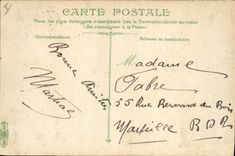 CARTE POSTALE
Tous les pays étrangers n'acceptent pas la Correspondance au recto
(Se renseigner à la Poste)
Correspondance
Adresse du destinataire
Bonne Amitié
Martial
Madame
Fabre
55 Rue Bernard du Bois
Marseille
B D R